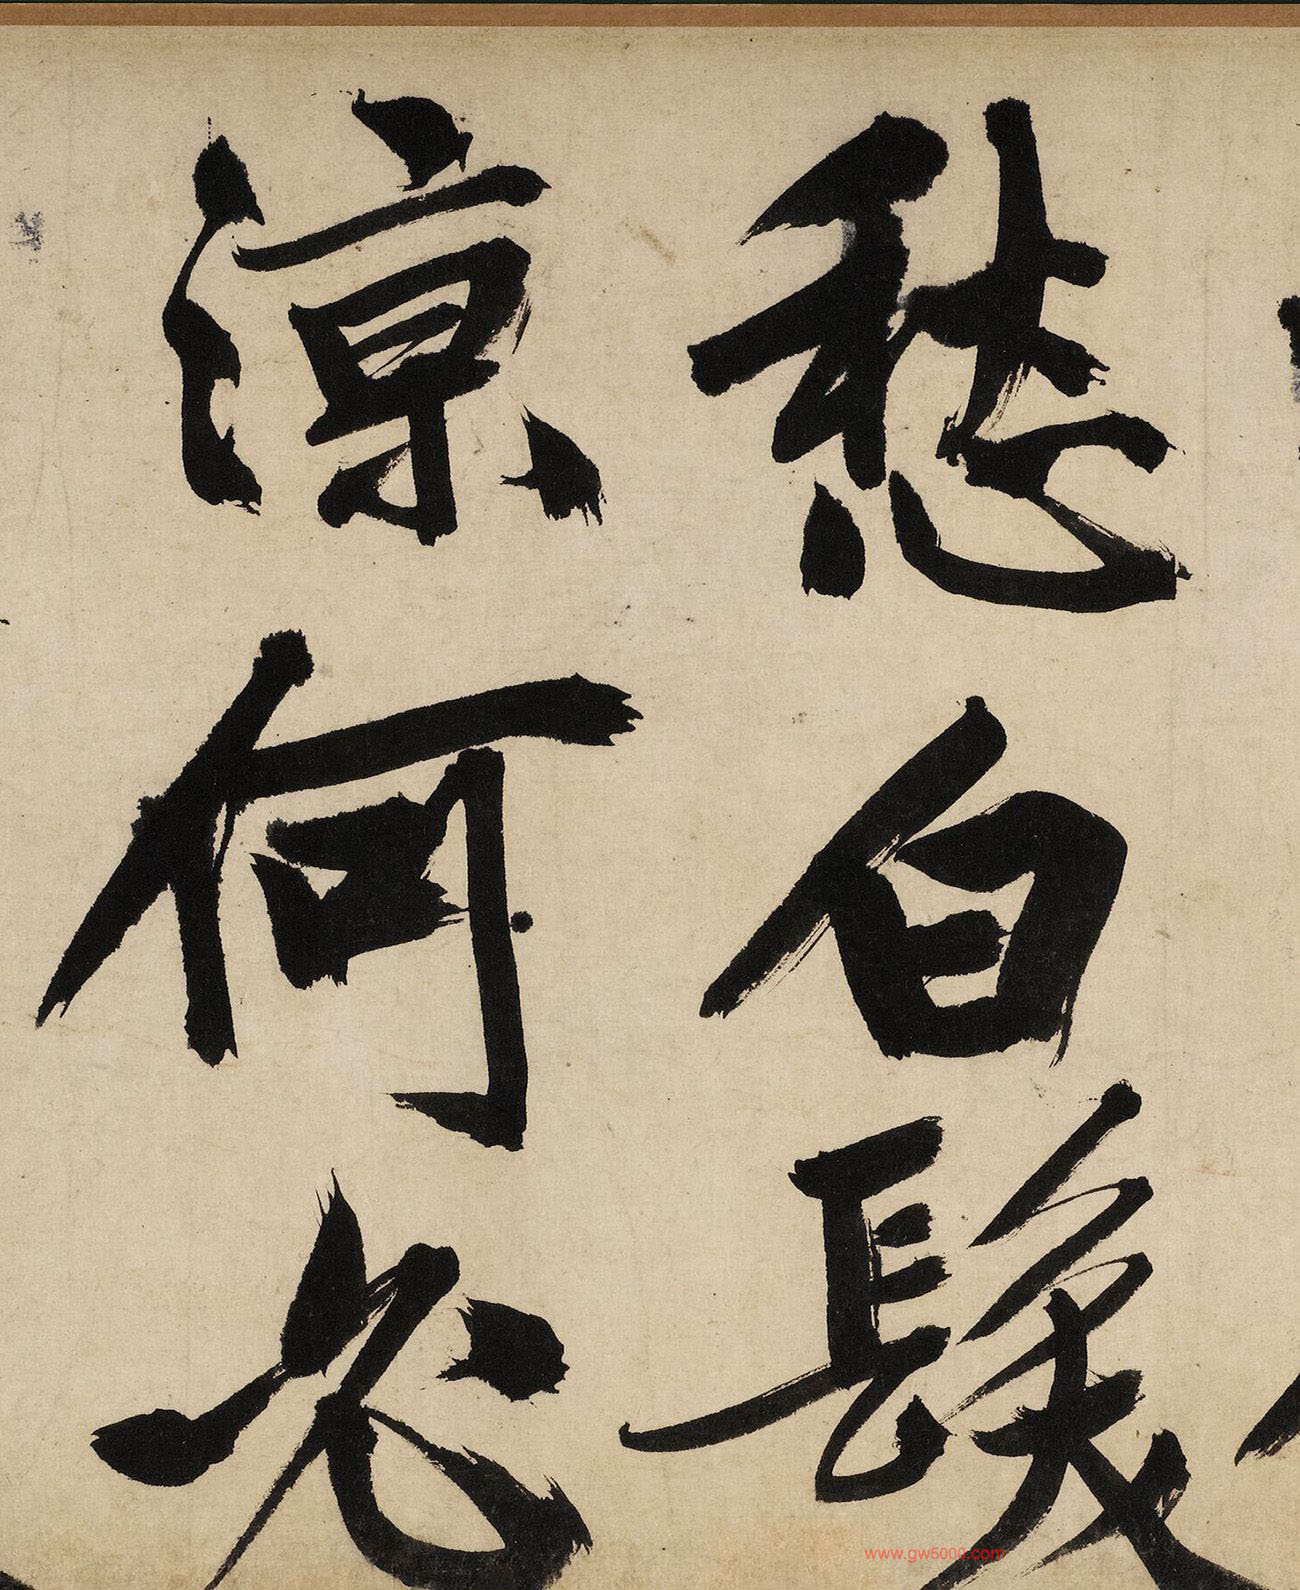 愁白髮
涼何必
www.gw5000.com